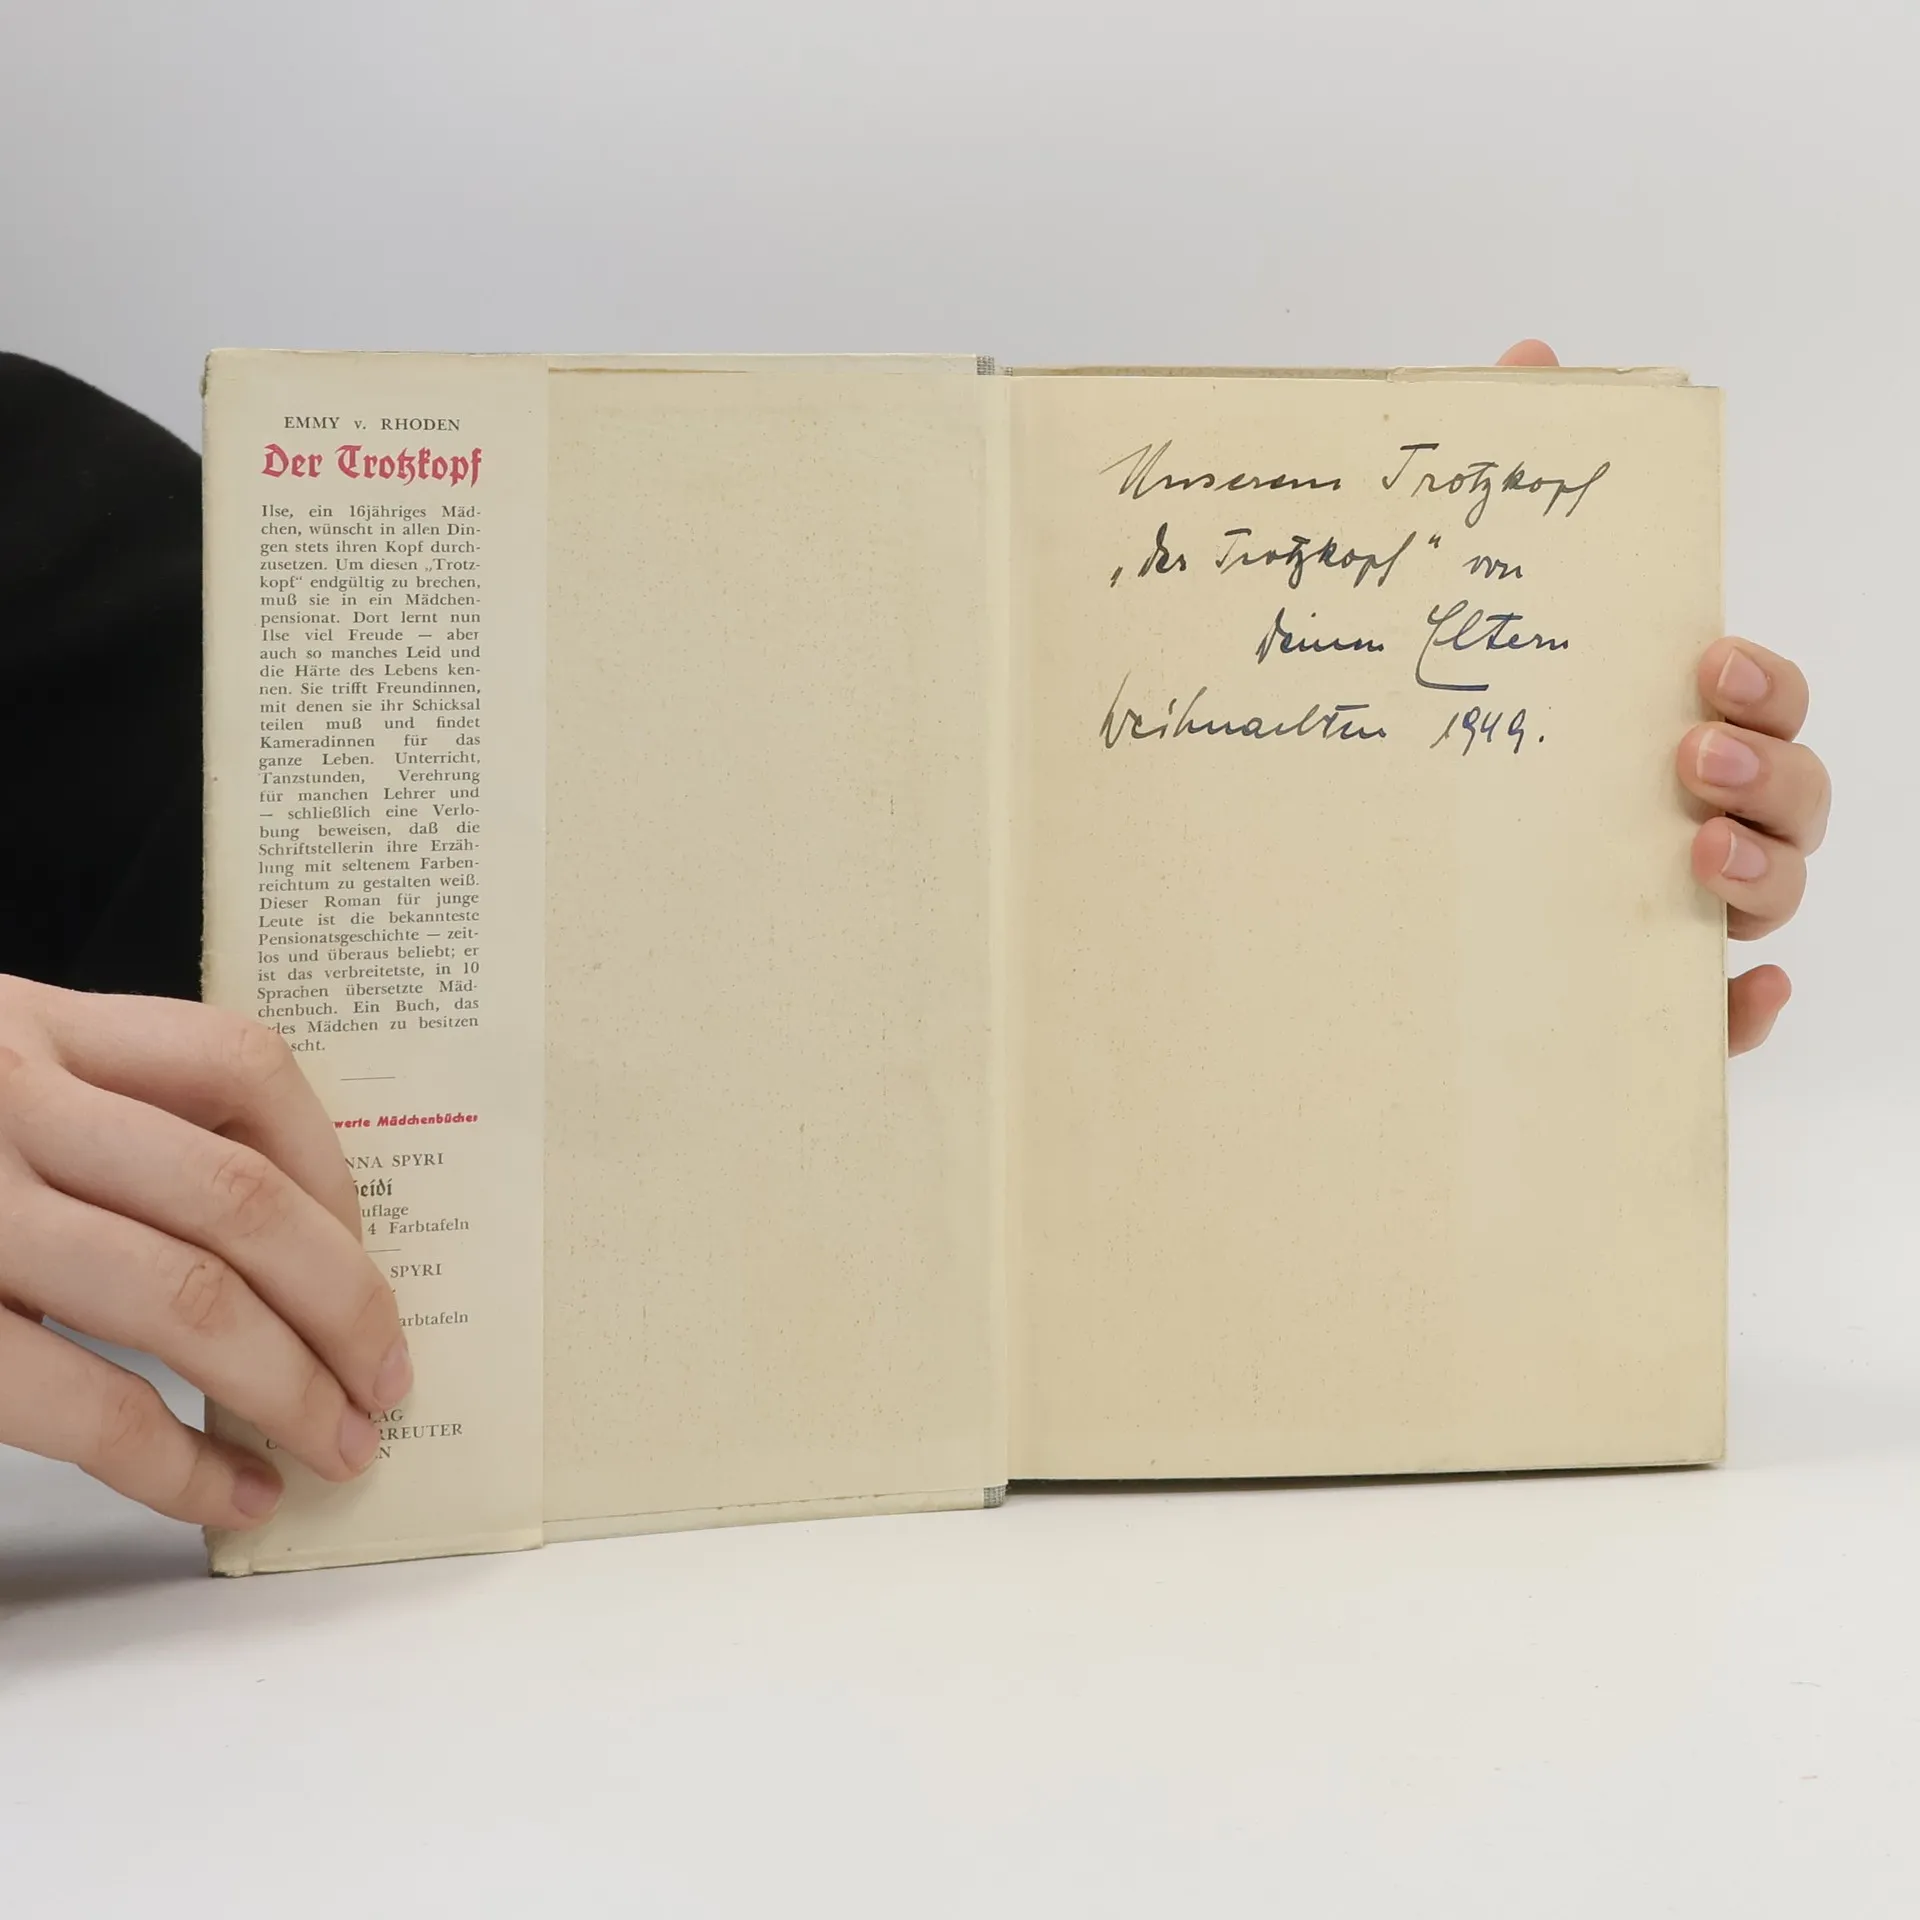 EMMY v. RHODEN
Der Trotzkopf
Ilse, ein 16jähriges Mäd-
chen, wünscht in allen Din-
gen stets ihren Kopf durch-
zusetzen. Um diesen „Trotz-
kopf“ endgültig zu brechen,
muß sie in ein Mädchen-
pensionat. Dort lernt nun
Ilse viel Freude — aber
auch so manches Leid und
die Härte des Lebens ken-
nen. Sie trifft Freundinnen,
mit denen sie ihr Schicksal
teilen muß und findet
Kameradinnen für das
ganze Leben. Unterricht,
Tanzstunden, Verehrung
für manchen Lehrer und
— schließlich eine Verlo-
bung beweisen, daß die
Schriftstellerin ihre Erzäh-
lung mit seltenem Farben-
reichtum zu gestalten weiß.
Dieser Roman für junge
Leute ist die bekannteste
Pensionatsgeschichte — zeit-
los und überaus beliebt; er
ist das verbreitetste, in 10
Sprachen übersetzte Mäd-
chenbuch. Ein Buch, das
des Mädchen zu besitzen
scht.
werte Mädchenbücher
NNA SPYRI
eidi
uflage
4 Farbtafeln
SPYRI
arbtafeln
LAG
RREUTER
N
Unserem Trotzkopf
„der Trotzkopf“ von
deinen Eltern
Weihnachten 1949.